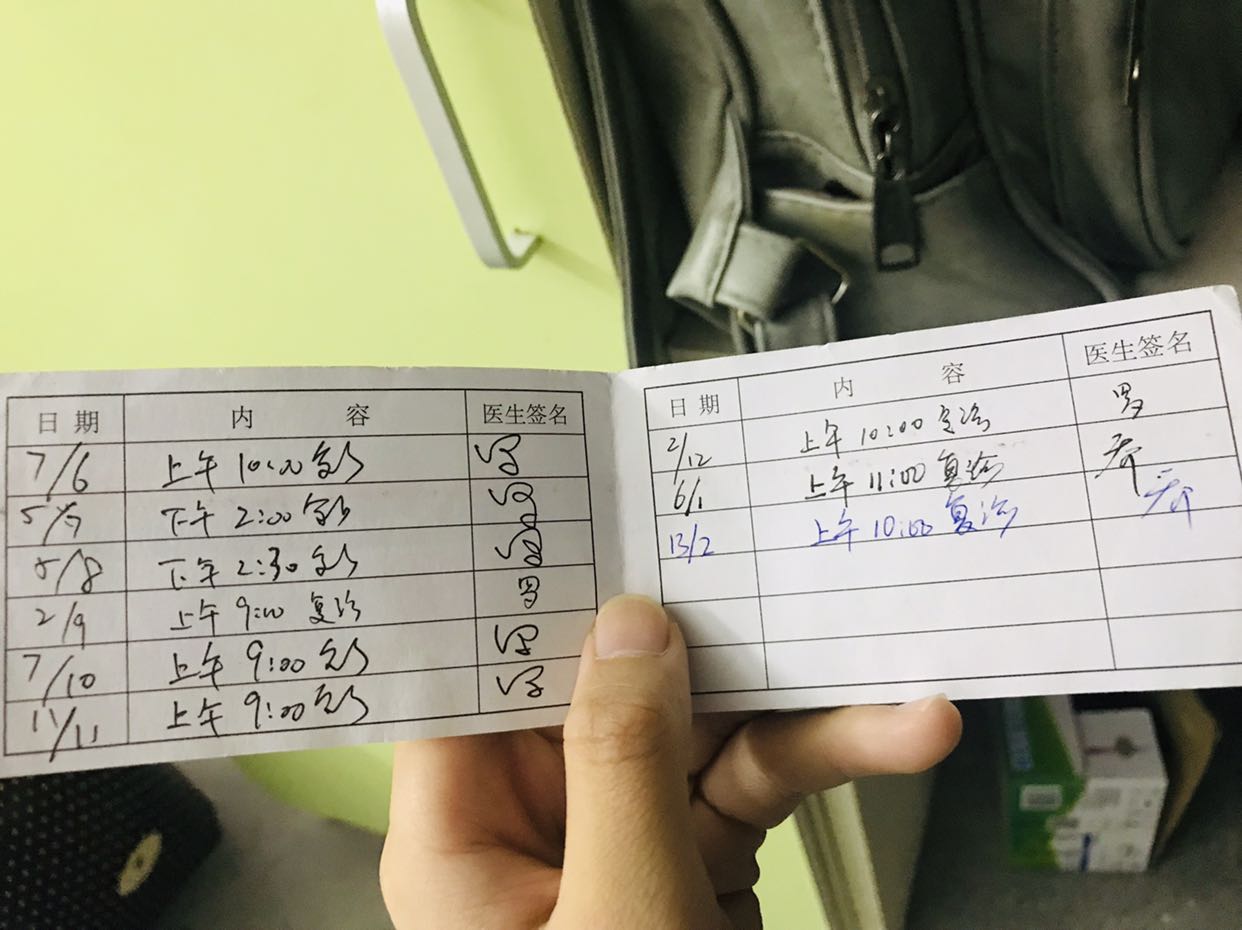 日期 内容 医生签名
7/6 上午 10:00 复诊
5/7 下午 2:00 复诊
5/8 下午 2:30 复诊
2/9 上午 9:00 复诊
7/10 上午 9:00 复诊
11/11 上午 9:00 复诊
日期 内容 医生签名
2/12 上午 10:00 复诊
6/1 上午 11:00 复诊
13/2 上午 10:00 复诊